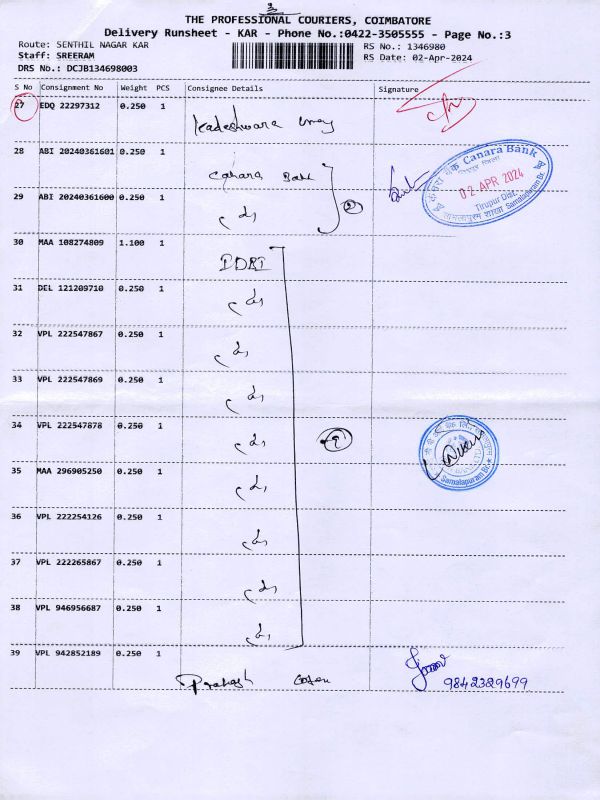 3
THE PROFESSIONAL COURIERS, COIMBATORE
Delivery Runsheet - KAR - Phone No.:0422-3505555 - Page No.:3
Route: SENTHIL NAGAR KAR
RS No.: 1346980
Staff: SREERAM
RS Date: 02-Apr-2024
DRS No.: DCJB134698003
S No Consignment No Weight PCS Consignee Details Signature
27 EDQ 22297312 0.250 1
28 ABI 20240361601 0.250 1 Canara Bank
29 ABI 20240361600 0.250 1
2
Canara Bank
02 APR 2024
Tirupur Dist.
Samalapuram Br.
30 MAA 108274809 1.100 1 IDBI
31 DEL 121209710 0.250 1
32 VPL 222547867 0.250 1
33 VPL 222547869 0.250 1
34 VPL 222547878 0.250 1
9
Samalapuram Br.
35 MAA 296905250 0.250 1
36 VPL 222254126 0.250 1
37 VPL 222265867 0.250 1
38 VPL 946956687 0.250 1
39 VPL 942852189 0.250 1
Prakash
9842329699